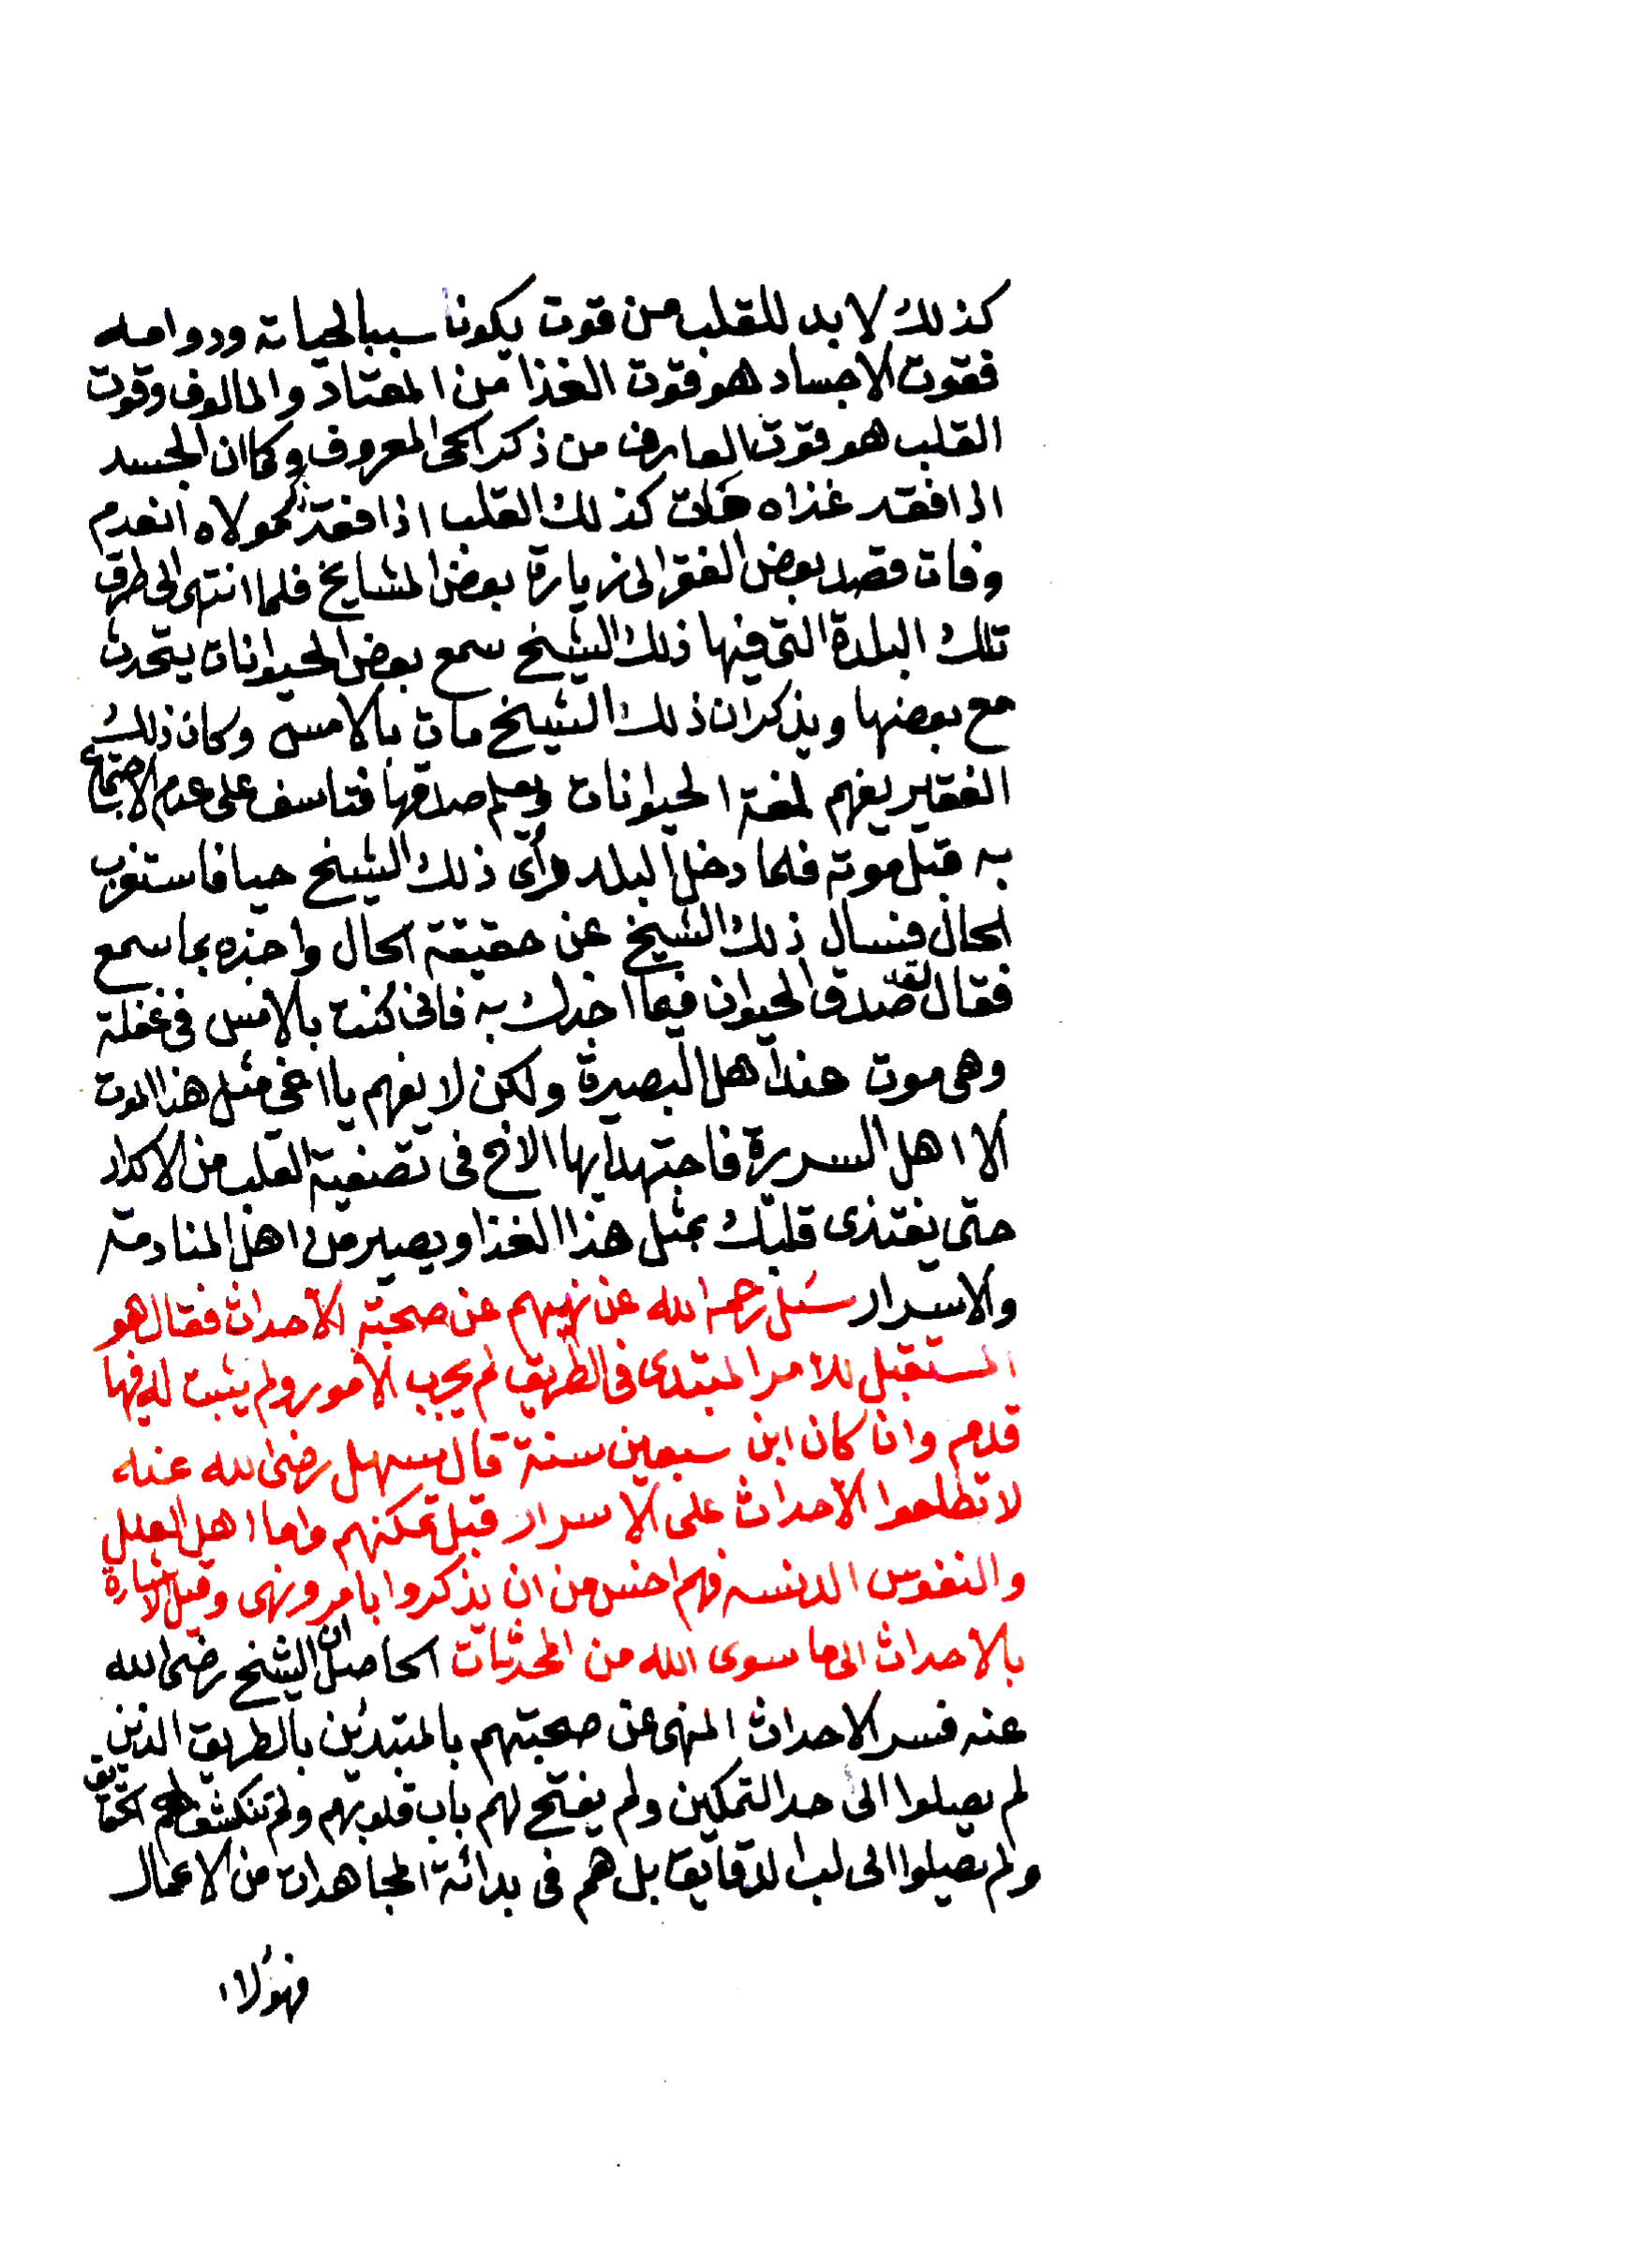 كذلك لا بد للقلب من قوت يكون سببا لحياته ودوامه
فقوت الاجساد هو قوت الغذا من المعتاد والمالوف وقوت
القلب هو قوت العارف من ذكر الحي المعروف وكما ان الجسد
اذا فقد غذاه هلك كذلك القلب اذا فقد ذكر مولاه انعدم
وفات قصد بعض الفقرا لى زيارة بعض المشايخ فلما انتهى الى طرق
تلك البلدة التي فيها ذلك الشيخ سمع بعض الحيوانات يتحدث
مع بعضها ويذكر ان ذلك الشيخ مات بالامس وكان ذلك
الفقير يفهم لغة الحيوانات ويعلم صدقها فتاسف على عدم الاجتماع
به قبل موته فلما دخل البلد وراى ذلك الشيخ حيا فاستغرب
الحال فسال ذلك الشيخ عن حقيقة الحال واخبره بما سمع
فقال لقد صدق الحيوان فيما اخبرك به فانى كنت بالامس في غفلة
وهى موت عند اهل البصيرة ولكن لا يفهم يا اخي مثل هذا الموت
الا اهل السريرة فاجتهد ايها الاخ فى تصفية القلب من الاكدار
حتى يغتذى قلبك بمثل هذا الغذا ويصير من اهل المنادمة
والاسرار سئل رحمه الله عن نهيهم عن صحبة الاحداث فقال هو
المستقبل للامر المبتدى فى الطريق لم يجرب الامور ولم يثبت له فيها
قدم وان كان ابن سبعين سنة قال سهل رضى الله عنه
لا تطلعوا الاحداث على الاسرار قبل تمكنهم واما اهل العلل
والنفوس الدنسه فهم اخس من ان يذكروا بامر ونهى وقيل الاشارة
بالاحداث الى ما سوى الله من المحدثات الحاصل ان الشيخ رضى الله
عنه فسر الاحداث المنهى عن صحبتهم بالمبتدئين بالطريق الذين
لم يصلوا الى حد التمكين ولم يفتح لهم باب قلوبهم ولم تنكشف لهم الحقايق
ولم يصلوا الى لب الدقايق بل هم فى بدائة المجاهدات من الاعمال
فهؤلاء